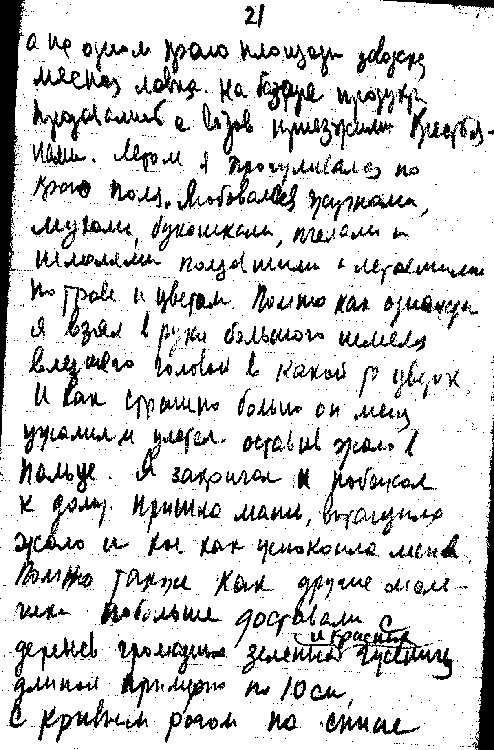 21
а на одном краю площади заводская
мясная лавка. На базаре продукты
продавались с возов приезжими крестья-
нами. Летом я прогуливался по
краю поля. Любовался жуками,
мухами, букашками, пчелами и
шмелями ползавшими и летавшими
по траве и цветам. Помню как однажды
я взял в руки большого шмеля
влезшего головой в какой то цветок
И как страшно больно он меня
ужалил и улетел оставив жало в
пальце. Я закричал и побежал
к дому. Пришла мама, вытащила
жало и кое как успокоила меня
Помню также как другие маль-
чики побольше доставали с
деревьев громадных зеленых и красных гусениц
длиной примерно по 10 см,
с кривым рогом на спине